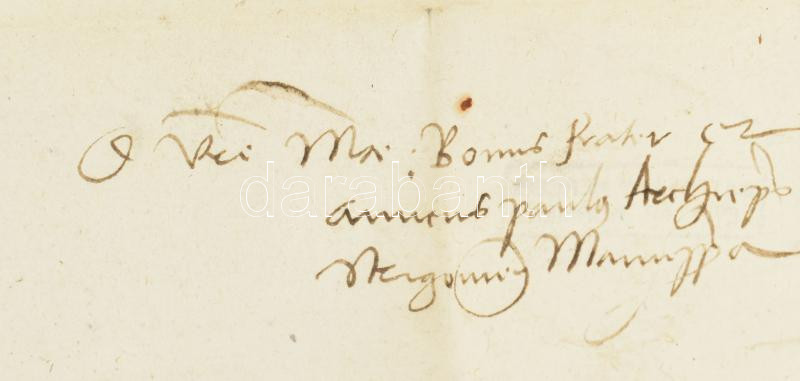 D Vre Mae. Bonus frater et
amicus paulus Archieps
Strigonien Manuppa
darabanth